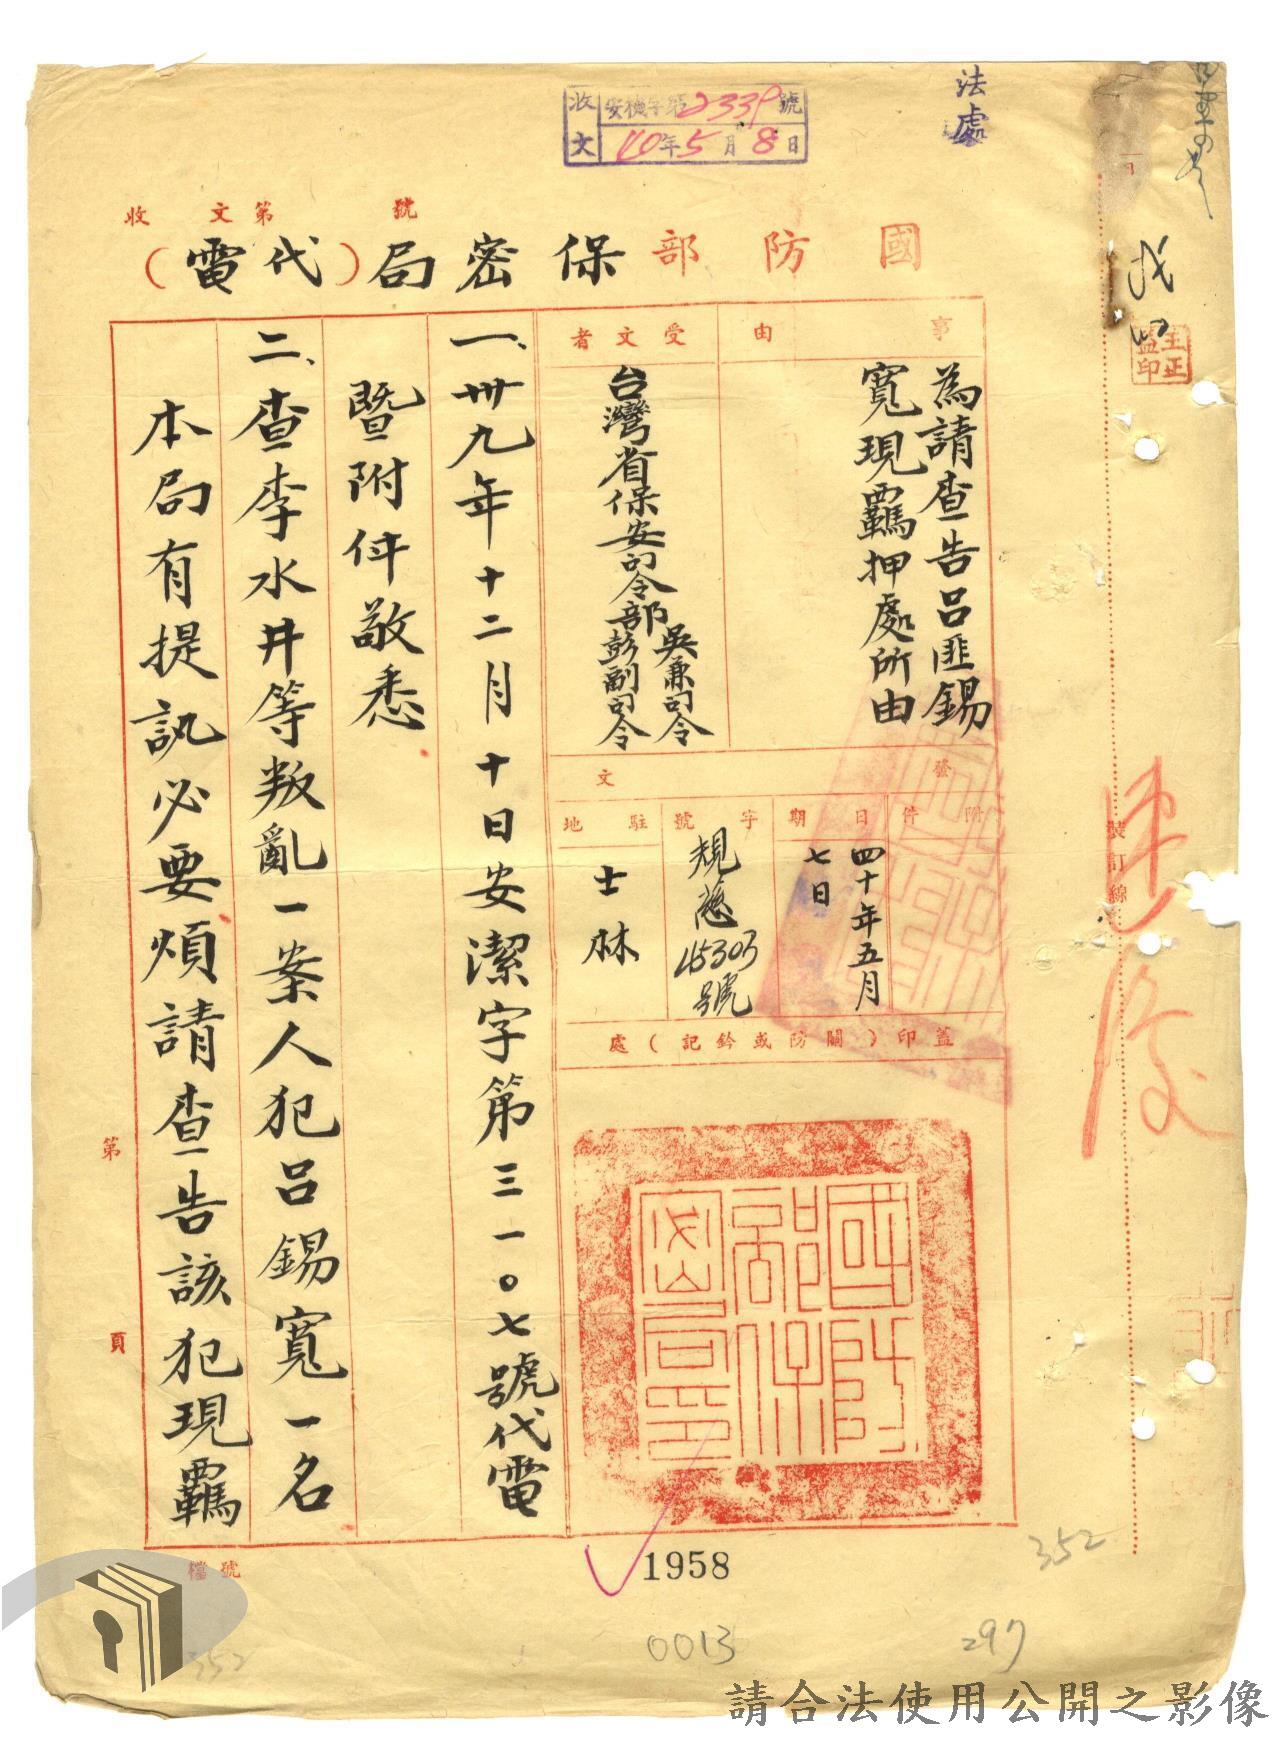 法處
收文 安機字第2339號
40年5月8日
收文第 號
國防部保密局(代電)
事由
為請查告呂匪錫
寬現羈押處所由
受文者
吳兼司令
台灣省保安司令部彭副司令
發文
附件
日期
四十年五月
七日
字號
45303
號
駐地
士林
蓋印(關防或鈐記)處
國防部保密局印
一、卅九年十二月十日安潔字第三一〇七號代電
暨附件敬悉
二、查李水井等叛亂一案人犯呂錫寬一名
本局有提訊必要煩請查告該犯現羈
第 頁
裝訂線
檔號
1958
352
0013
297
352
請合法使用公開之影像